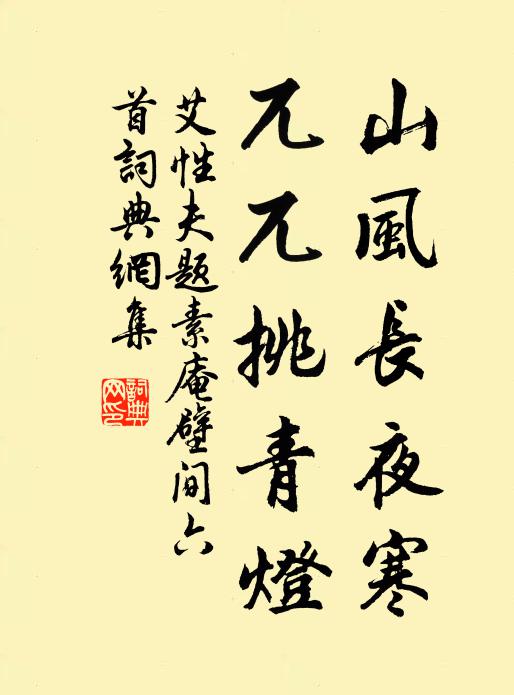 山風長夜寒
兀兀挑青燈
艾性夫題素庵壁间六
首詞典網集
詞典
网印